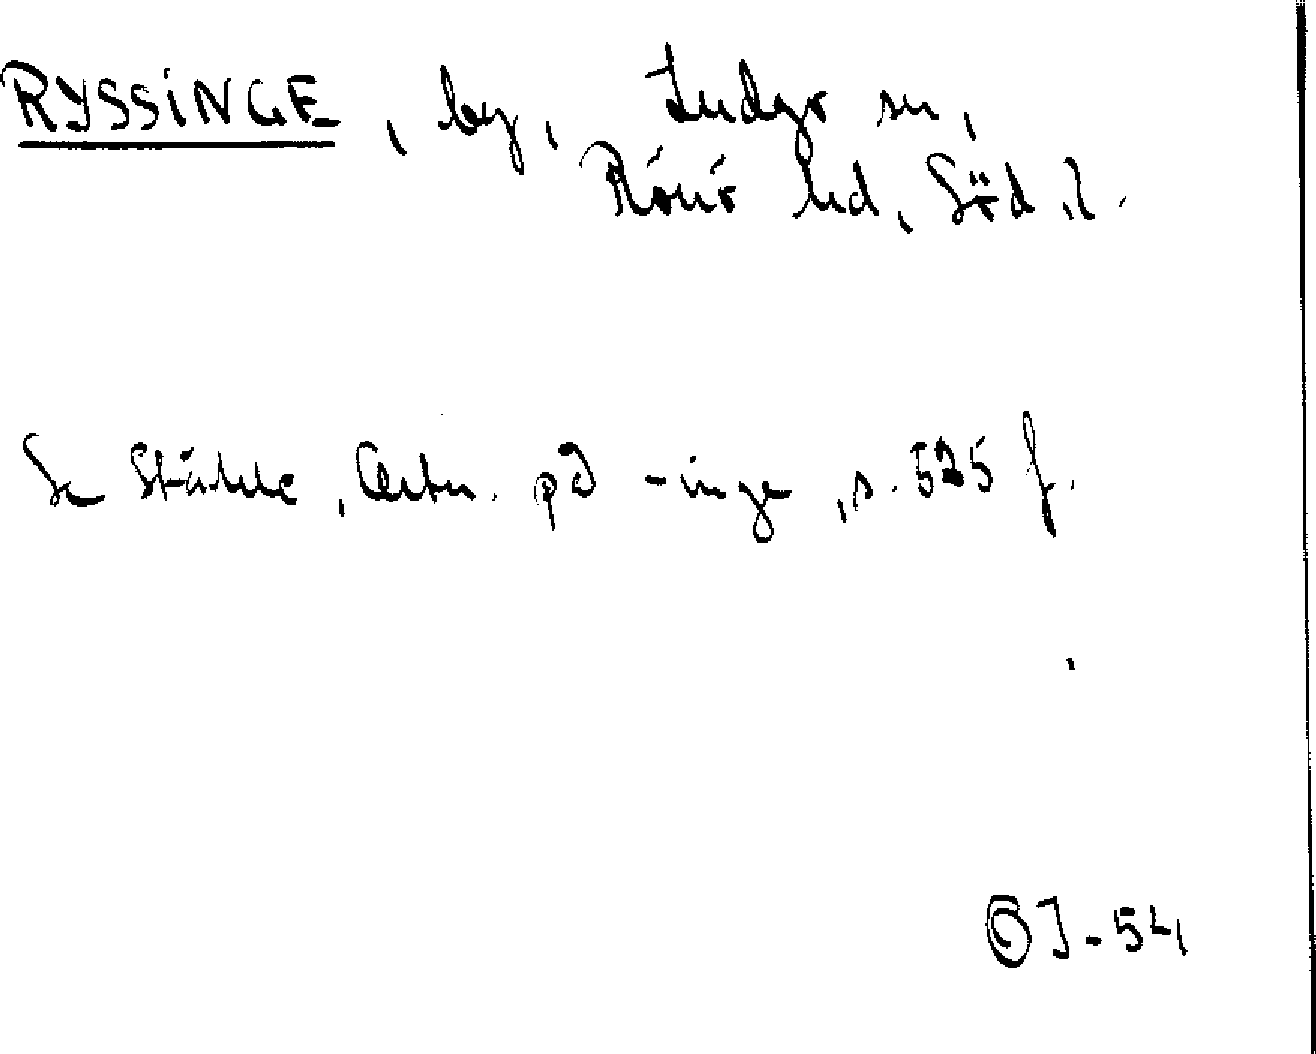 RYSSINGE, by, Ludgo sn,
Rönö hd, Söd. l.
Se Ståhle, Ortn. på -inge, s. 525 f.
OJ-54